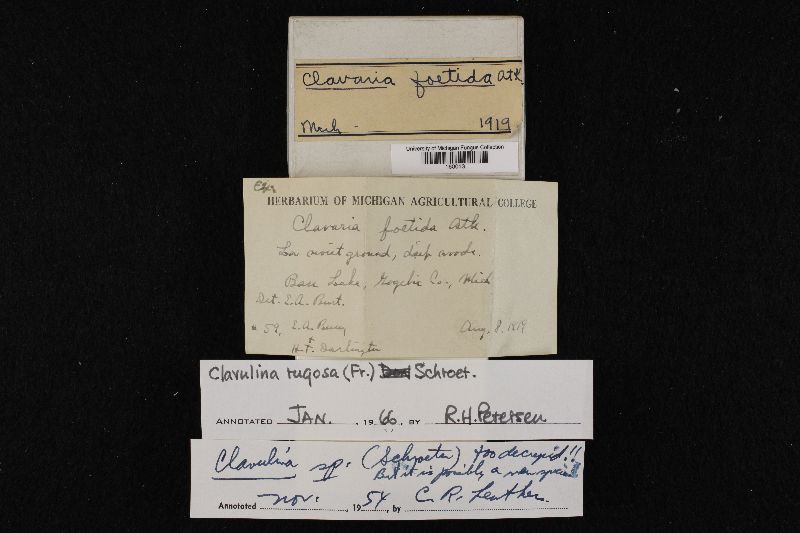 Clavaria foetida Atk.
Mich - 1919
University of Michigan Fungus Collection
160013
HERBARIUM OF MICHIGAN AGRICULTURAL COLLEGE
Clavaria foetida Atk.
moist ground, deep woods.
Bass Lake, Gogebic Co., Mich
Det. E.A. Burt.
59, E.A. Bessey Aug. 8, 1919
+
H.T. Darlington
Clavulina rugosa (Fr.) Schroet.
ANNOTATED JAN. , 1966 , BY R.H. Petersen
Clavulina sp. (Schroeter) too decrepid!!
But it is possibly a new species
Annotated Nov. , 1954 , by C. R. Leathers